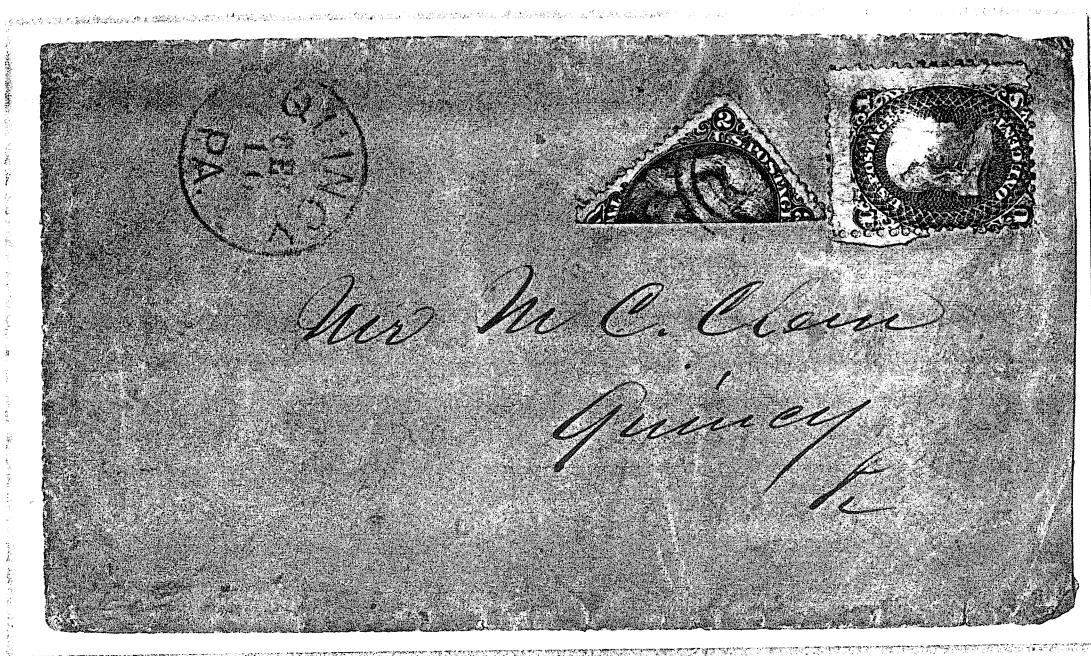 QUINCY
FE
11
PA.
2
U.S. POSTAGE
U.S. POSTAGE
Mr M C. Clain
Quincy
Pa